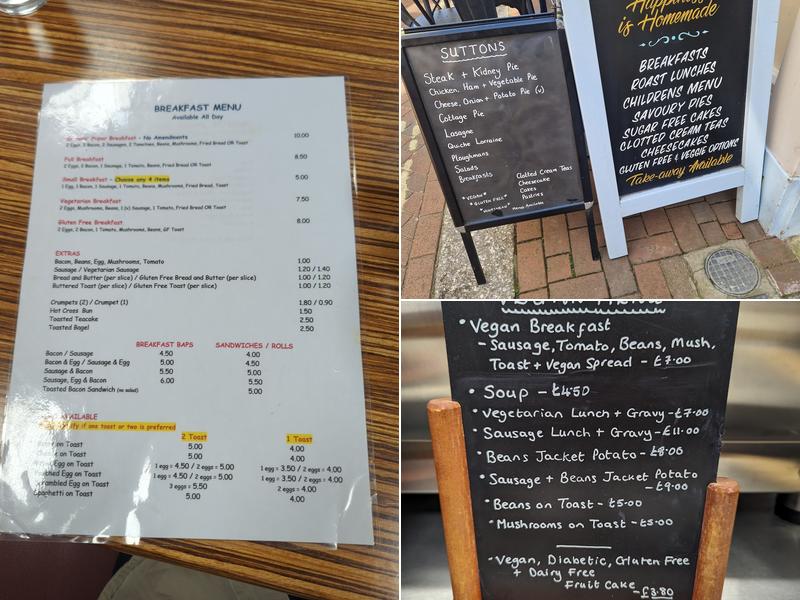 BREAKFAST MENU
Available All Day
Breakfast - No Amendments 10.00
2 Eggs, 2 Bacon, 2 Sausages, 2 Tomatoes, Beans, Mushrooms, Fried Bread OR Toast
Full Breakfast 8.50
2 Eggs, 2 Bacon, 1 Sausage, 1 Tomato, Beans, Fried Bread OR Toast
Small Breakfast - Choose any 4 items 5.00
1 Egg, 1 Bacon, 1 Sausage, 1 Tomato, Beans, Mushrooms, Fried Bread, Toast
Vegetarian Breakfast 7.50
2 Eggs, Mushrooms, Beans, 1 (v) Sausage, 1 Tomato, Fried Bread OR Toast
Gluten Free Breakfast 8.00
2 Eggs, 2 Bacon, 1 Tomato, Mushrooms, Beans, GF Toast
EXTRAS
Bacon, Beans, Egg, Mushrooms, Tomato 1.00
Sausage / Vegetarian Sausage 1.20 / 1.40
Bread and Butter (per slice) / Gluten Free Bread and Butter (per slice) 1.00 / 1.20
Buttered Toast (per slice) / Gluten Free Toast (per slice) 1.00 / 1.20
Crumpets (2) / Crumpet (1) 1.80 / 0.90
Hot Cross Bun 1.50
Toasted Teacake 2.50
Toasted Bagel 2.50
BREAKFAST BAPS SANDWICHES / ROLLS
Bacon / Sausage 4.50 4.00
Bacon & Egg / Sausage & Egg 5.00 5.00
Sausage & Bacon 5.50 5.50
Sausage, Egg & Bacon 6.00 5.00
Toasted Bacon Sandwich (no salad)
AVAILABLE
if one toast or two is preferred
2 Toast 1 Toast
on Toast 5.00 4.00
on Toast 5.00 4.00
Egg on Toast 1 egg = 4.50 / 2 eggs = 5.00 1 egg = 3.50 / 2 eggs = 4.00
Egg on Toast 1 egg = 4.50 / 2 eggs = 5.00 1 egg = 3.50 / 2 eggs = 4.00
Scrambled Egg on Toast 3 eggs = 5.50 2 eggs = 4.00
Spaghetti on Toast 5.00 4.00
SUTTONS
Steak + Kidney Pie
Chicken, Ham + Vegetable Pie
Cheese, Onion + Potato Pie (v)
Cottage Pie
Lasagne
Quiche Lorraine
Ploughmans
Salads
Breakfasts
Clotted Cream Teas
Cheesecake
Cakes
Pastries
*VEGAN*
*GLUTEN FREE*
Menus Available
Happiness
is Homemade
BREAKFASTS
ROAST LUNCHES
CHILDRENS MENU
SAVOURY PIES
SUGAR FREE CAKES
CLOTTED CREAM TEAS
CHEESECAKES
GLUTEN FREE & VEGGIE OPTIONS
Take-away Available
• Vegan Breakfast
- Sausage, Tomato, Beans, Mush,
Toast + Vegan Spread - £7.00
• Soup - £4.50
• Vegetarian Lunch + Gravy - £7.00
• Sausage Lunch + Gravy - £11.00
• Beans Jacket Potato - £8.00
• Sausage + Beans Jacket Potato
- £9.00
• Beans on Toast - £5.00
• Mushrooms on Toast - £5.00
- Vegan, Diabetic, Gluten Free
+ Dairy Free
Fruit Cake
- £3.80